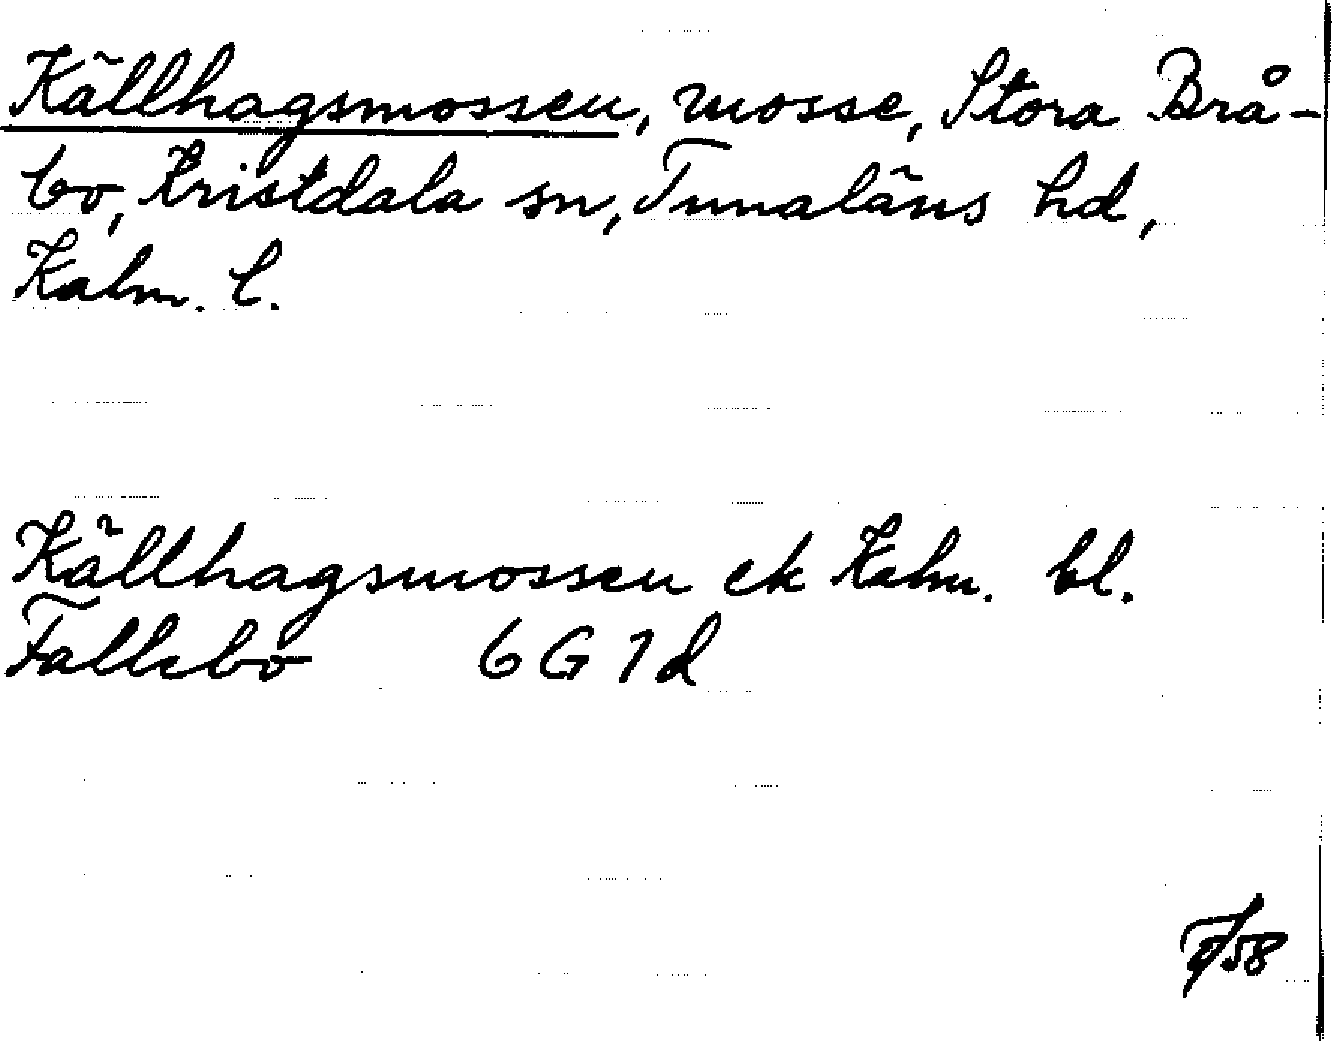 Källhagsmossen, mosse, Stora Brå-
bo, Kristdala sn, Tunaläns hd,
Kalm. l.
Källhagsmossen ek Kalm. bl.
Fallebo 6 G 1 d
58